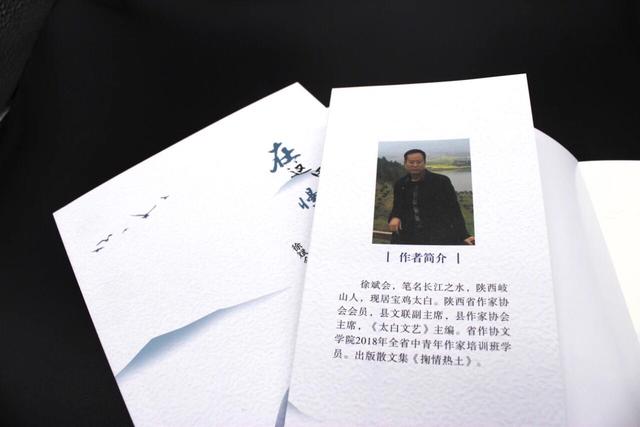 在
这
徐斌
作者简介
徐斌会，笔名长江之水，陕西岐
山人，现居宝鸡太白。陕西省作家协
会会员，县文联副主席，县作家协会
主席，《太白文艺》主编。省作协文
学院2018年全省中青年作家培训班学
员。出版散文集《掬情热土》。